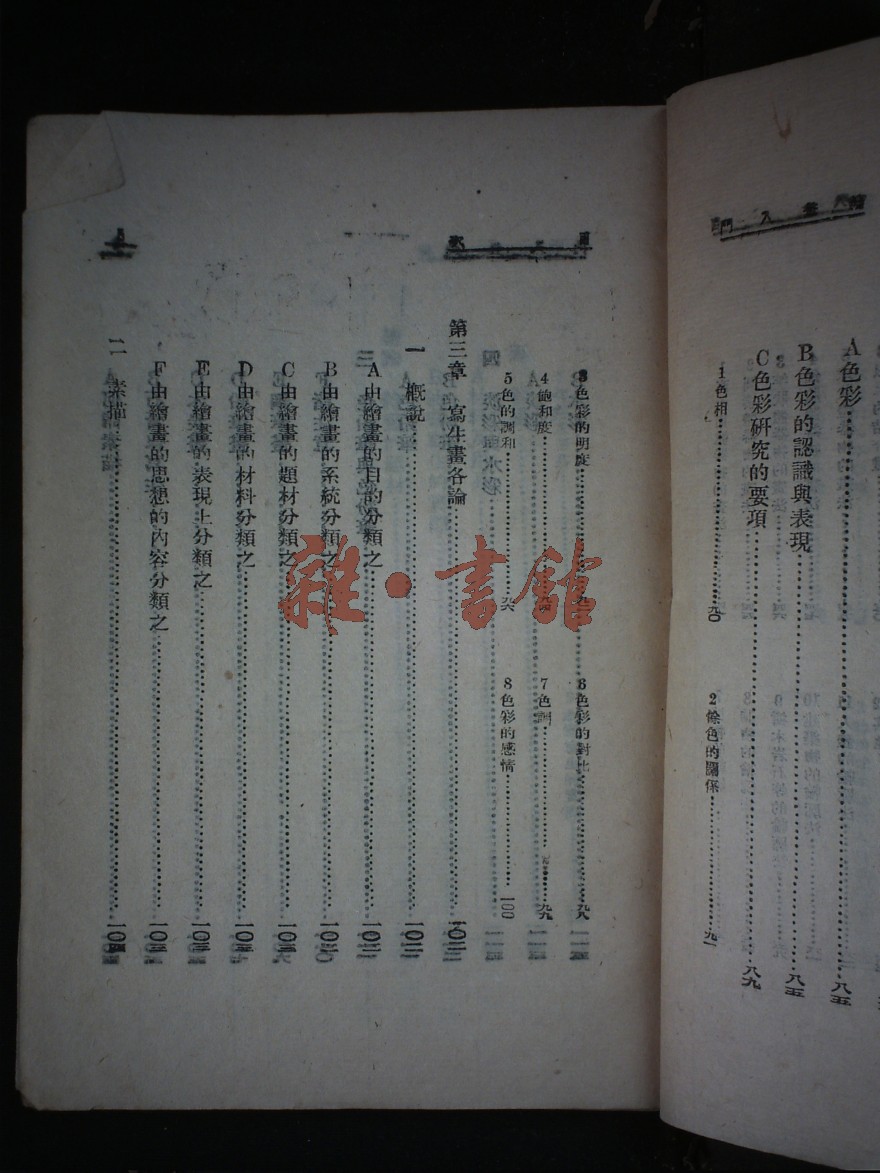 A色彩……八五
B色彩的認識與表現……八五
C色彩研究的要項……八九
1色相……九〇
2餘色的關係……九一
目次
3色彩的明度
6色彩的對比……九八
4飽和度……九四
7色調……九九
5色的調和……九六
8色彩的感情……一〇〇
第三章 寫生畫各論
一 概說
A由繪畫的目的分類之
B由繪畫的系統分類之
C由繪畫的題材分類之
D由繪畫的材料分類之
E由繪畫的表現上分類之
F由繪畫的思想的內容分類之
二 素描
雜·書館